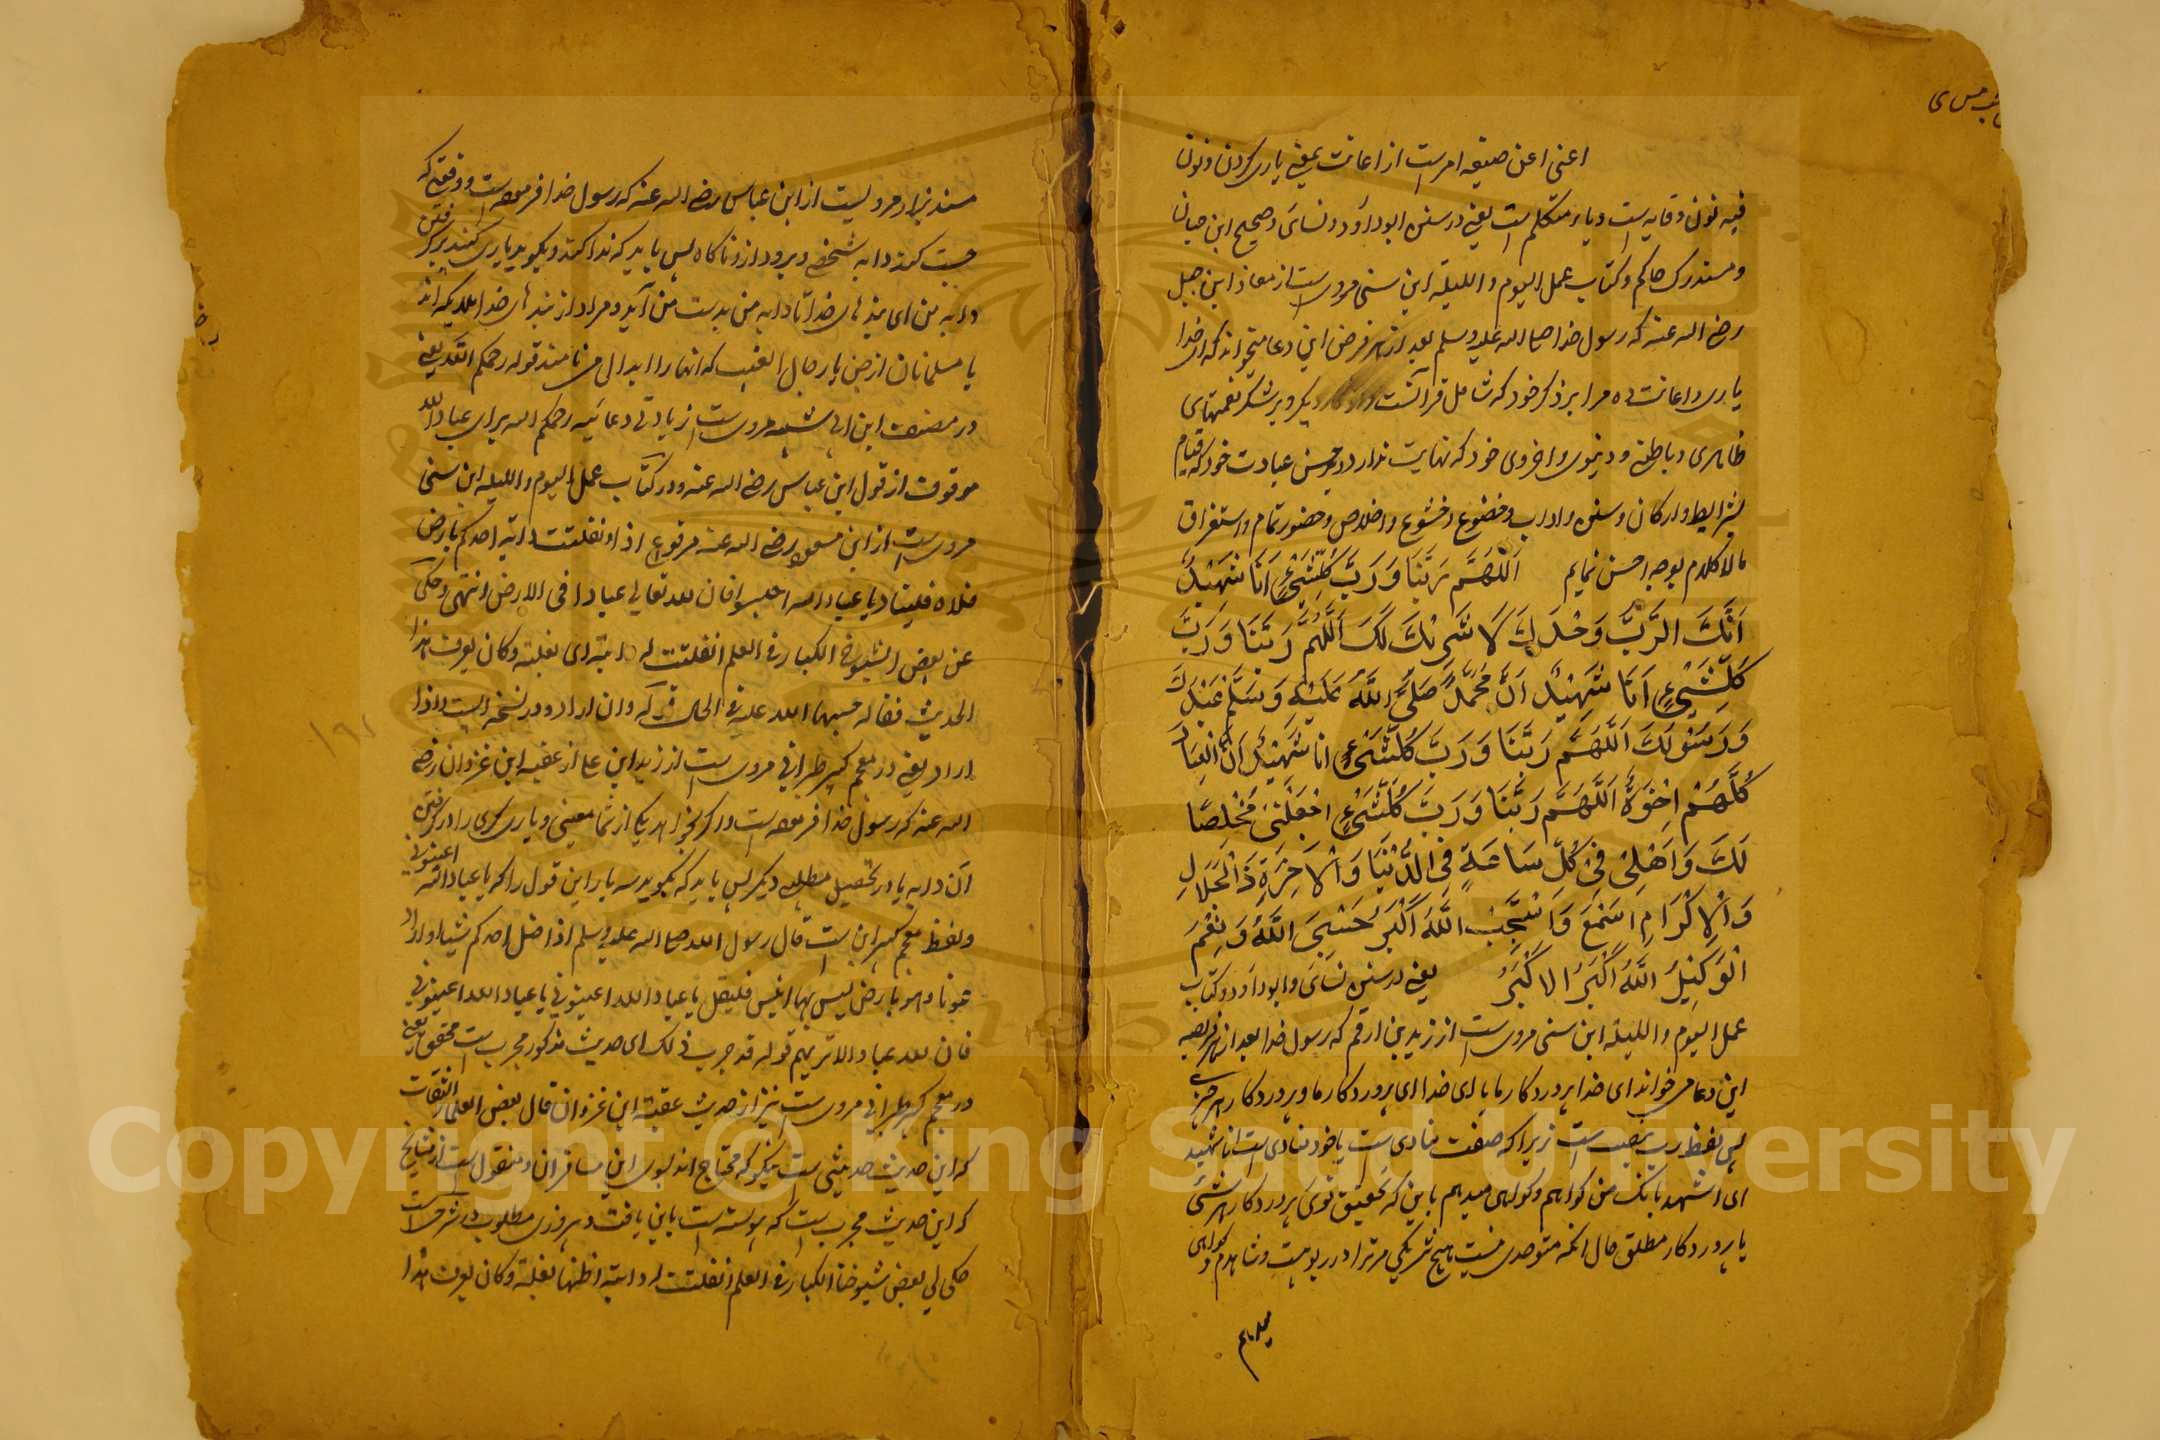 اعنی اعن صیغه امرست از اعانت یعنی یاری کردن و نون
فیه نون وقایه است و یاء متکلم است یعنی در سنن ابوداود و نسائی و صحیح ابن حبان
و مستدرک حاکم و کتاب عمل الیوم واللیلة ابن سنی مروی ست از معاذ ابن جبل
رضی الله عنه که رسول خدا صلی الله علیه وسلم بعد از هر فرض این دعا میخواند که ای خدا
یاری و اعانت ده مرا بر ذکر خود که شامل قرآنست و دیگر و بر شکر نعمتهای
ظاهری و باطنی و دنیوی و اخروی خود که نهایت ندارد و بر حسن عبادت خود که قیام
بشرایط و ارکان و سنن و اداب و خضوع و خشوع و اخلاص و حضور تمام و استغراق
مالاکلام بوجه احسن نمایم اَللّٰهُمَّ رَبَّنَا وَرَبَّ كُلِّ شَيْءٍ اَنَا شَهِيْدٌ
اَنَّكَ الرَّبُّ وَحْدَكَ لَا شَرِيْكَ لَكَ اَللّٰهُمَّ رَبَّنَا وَرَبَّ
كُلِّ شَيْءٍ اَنَا شَهِيْدٌ اَنَّ مُحَمَّدًا صَلَّى اللّٰهُ عَلَيْهِ وَسَلَّمَ عَبْدُكَ
وَرَسُوْلُكَ اَللّٰهُمَّ رَبَّنَا وَرَبَّ كُلِّ شَيْءٍ انا شَهِيْدٌ اَنَّ الْعِبَادَ
كُلَّهُمْ اِخْوَةٌ اَللّٰهُمَّ رَبَّنَا وَرَبَّ كُلِّ شَيْءٍ اجْعَلْنِيْ مُخْلِصًا
لَكَ وَاَهْلِيْ فِيْ كُلِّ سَاعَةٍ فِي الدُّنْيَا وَالْاٰخِرَةِ ذَا الْجَلَالِ
وَالْاِكْرَامِ اسْمَعْ وَاسْتَجِبْ اللّٰهُ اَكْبَرُ حَسْبِيَ اللّٰهُ وَنِعْمَ
الْوَكِيْلُ اللّٰهُ اَكْبَرُ الْاَكْبَرُ یعنی در سنن نسائی و ابوداود و کتاب
عمل الیوم واللیلة ابن سنی مروی ست از زید بن ارقم که رسول خدا بعد از هر فریضه
این دعا می خواند ای خدا پروردگار ما یا ای خدا ای پروردگار ما و پروردگار هر چیزی
پس لفظ رب بنصب ست زیرا که صفت منادی ست یا خود منادی ست انا شهید
ای اشهد بانک من گواهم و گواهی میدهم باین که تحقیق توئی پروردگار هر شئی
یا پروردگار مطلق حال انکه متوحدی نیست هیچ شریکی مرترا در ربوبیت و شاهدم و گواهی
میدهم
مسند بزار مرویست از ابن عباس رضی الله عنه که رسول خدا فرموده ست و وقتی که
جست کند دابه شخصی و برود از و ناگاه پس باید که ندا کند و بگوید یاری کنید بر گرفتن
دابه من ای بندهای خدا تا دابه من بدست من آید و مراد از بندهای خدا ملایکه اند
یا مسلمانان از جن یا رجال الغیب که انها را ابدال می نامند قوله رحمکم الله یعنی
در مصنف ابن ابی شیبه مروی ست زیادتی دعائیه رحمکم الله برای عباد الله
موقوف از قول ابن عباس رضی الله عنه و در کتاب عمل الیوم واللیله ابن سنی
مروی ست از ابن مسعود رضی الله عنه مرفوع اذا انفلتت دابة احدکم بارض
فلاة فلیناد یا عباد الله احبسوا فان لله تعالی عبادا فی الارض انتهی و حکی
عن بعض الشیوخ الکبار فی العلم انفلتت له دابة ای بغلة و کان یعرف هذا
الحدیث فقاله حبسها الله علیه فی الحال قوله وان اراد و در نسخه است و اذا
اراد یعنی در معجم کبیر طبرانی مروی ست از زید ابن علی از عتبه ابن غزوان رضی
الله عنه که رسول خدا فرموده ست و اگر بخواهد یکی از شما معینی و یاری گری را در گرفتن
آن دابه یا در تحصیل مطلبی دیگر پس باید که بگوید سه بار این قول را که یا عباد الله اعینونی
و لفظ معجم کبیر این ست قال رسول الله صلی الله علیه وسلم اذا ضل احدکم شیئا او اراد
عونا و هو بارض لیس بها انیس فلیقل یا عباد الله اعینونی یا عباد الله اعینونی
فان لله عباد الا تریهم قوله قد جرب ذلک ای حدیث مذکور مجرب ست محقق یعنی
در معجم کبیر طبرانی مروی ست نیز از حدیث عقبة ابن غزوان قال بعض العلماء الثقات
که این حدیث حدیثی ست نیکو که محتاج اند بسوی این مسافران و منقول ست از مشایخ
که این حدیث مجرب ست که پیوسته است باین یافت و پیروزی مطلوب در شرح است
حکی لی بعض شیوخنا الکبار فی العلم انفلتت له دابة اظنها بغلة و کان یعرف هذا
Copyright © King Saud University